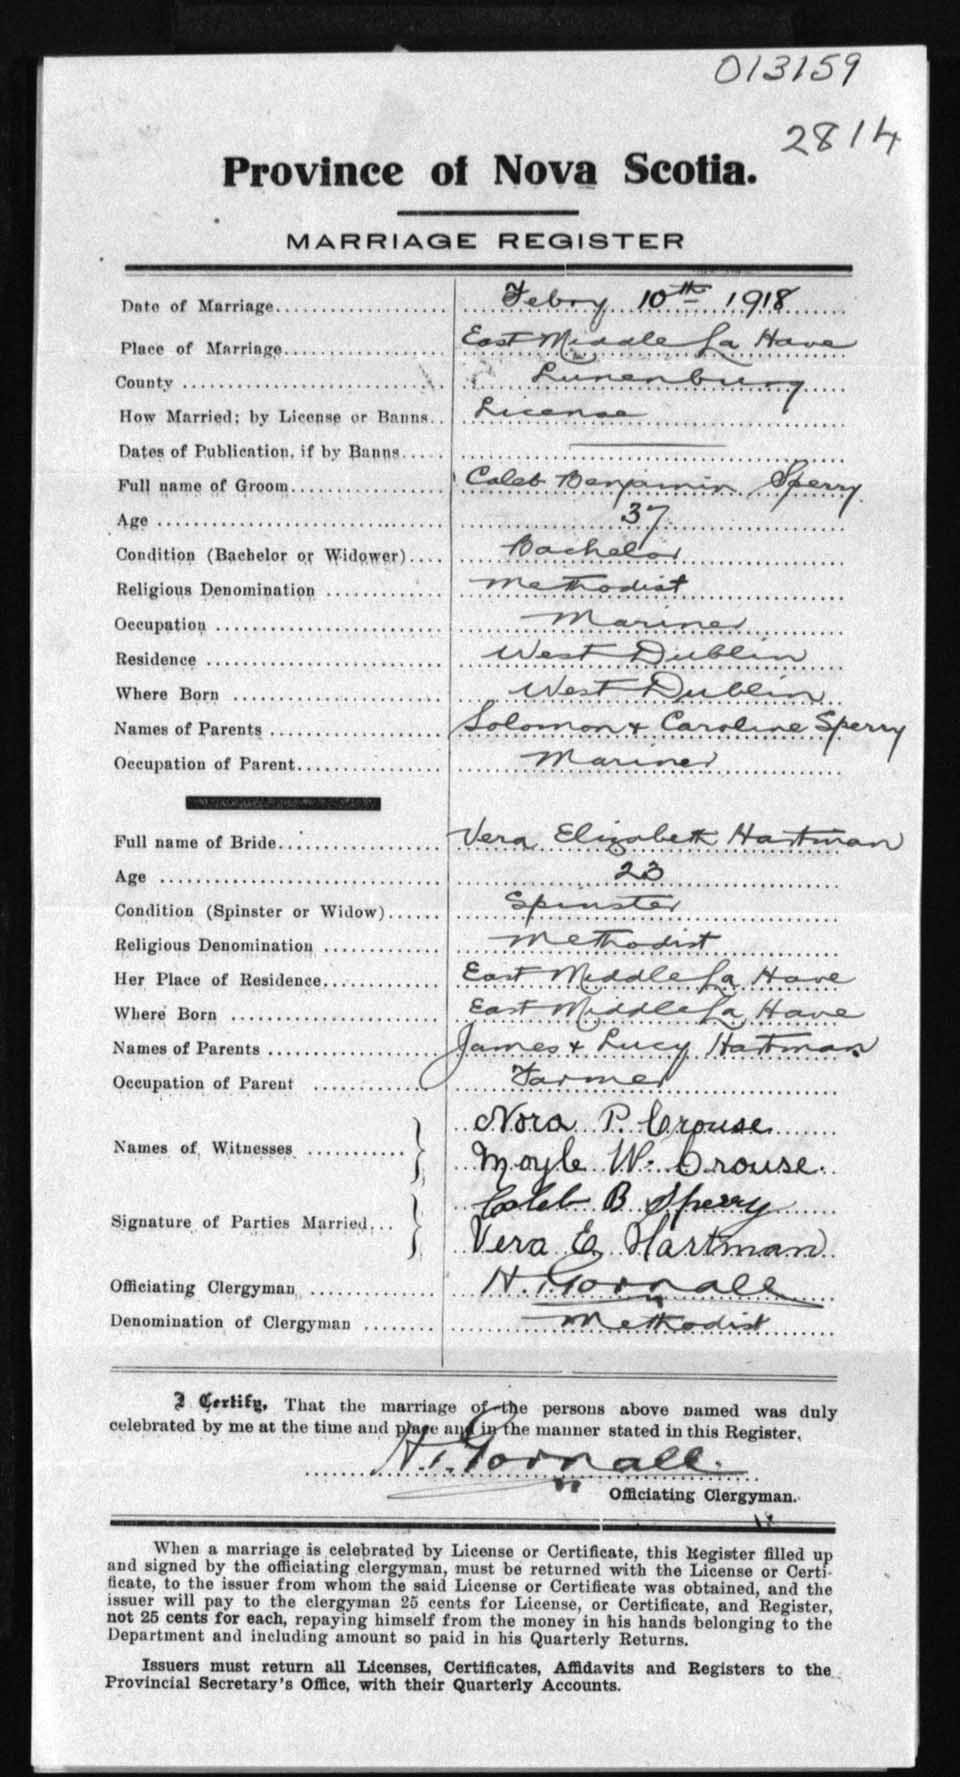 013159
2814
Province of Nova Scotia.
MARRIAGE REGISTER
Date of Marriage.................... Febry 10th 1918
Place of Marriage.................... East Middle La Have
County .................... Lunenburg
How Married; by License or Banns.. License
Dates of Publication, if by Banns..... ———
Full name of Groom.................... Caleb Benjamin Sperry
Age .................... 37
Condition (Bachelor or Widower).... Bachelor
Religious Denomination .................... Methodist
Occupation .................... Mariner
Residence .................... West Dublin
Where Born .................... West Dublin
Names of Parents .................... Solomon & Caroline Sperry
Occupation of Parent.................... Mariner
Full name of Bride.................... Vera Elizabeth Hartman
Age .................... 23
Condition (Spinster or Widow)...... Spinster
Religious Denomination .................... Methodist
Her Place of Residence.................... East Middle La Have
Where Born .................... East Middle La Have
Names of Parents .................... James & Lucy Hartman
Occupation of Parent .................... Farmer
Names of Witnesses ........... Nora P. Crouse
Moyle W. Crouse.
Signature of Parties Married... Caleb B Sperry
Vera E. Hartman
Officiating Clergyman .............. H. T. Gornall
Denomination of Clergyman ........ Methodist
I Certify, That the marriage of the persons above named was duly
celebrated by me at the time and place and in the manner stated in this Register,
H. T. Gornall.
Officiating Clergyman.
When a marriage is celebrated by License or Certificate, this Register filled up
and signed by the officiating clergyman, must be returned with the License or Certi-
ficate, to the issuer from whom the said License or Certificate was obtained, and the
issuer will pay to the clergyman 25 cents for License, or Certificate, and Register,
not 25 cents for each, repaying himself from the money in his hands belonging to the
Department and including amount so paid in his Quarterly Returns.
Issuers must return all Licenses, Certificates, Affidavits and Registers to the
Provincial Secretary's Office, with their Quarterly Accounts.